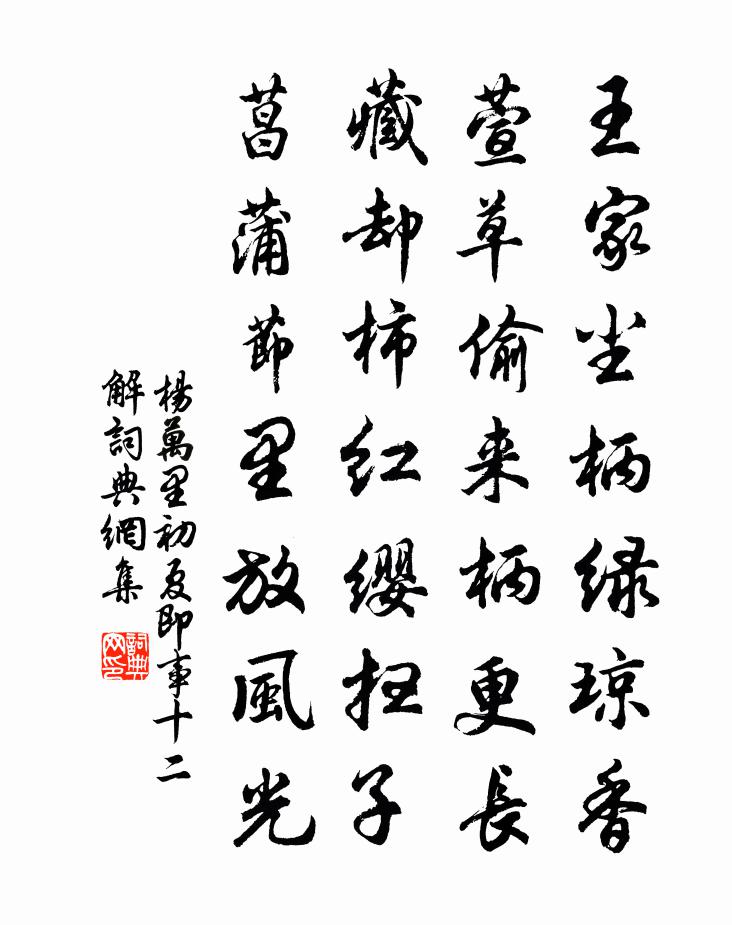 王家尘柄绿琼香
萱草偷来柄更長
藏却柿红缨扫子
菖蒲莭里放風光
楊萬里初夏即事十二
解詞典網集
詞典
网印